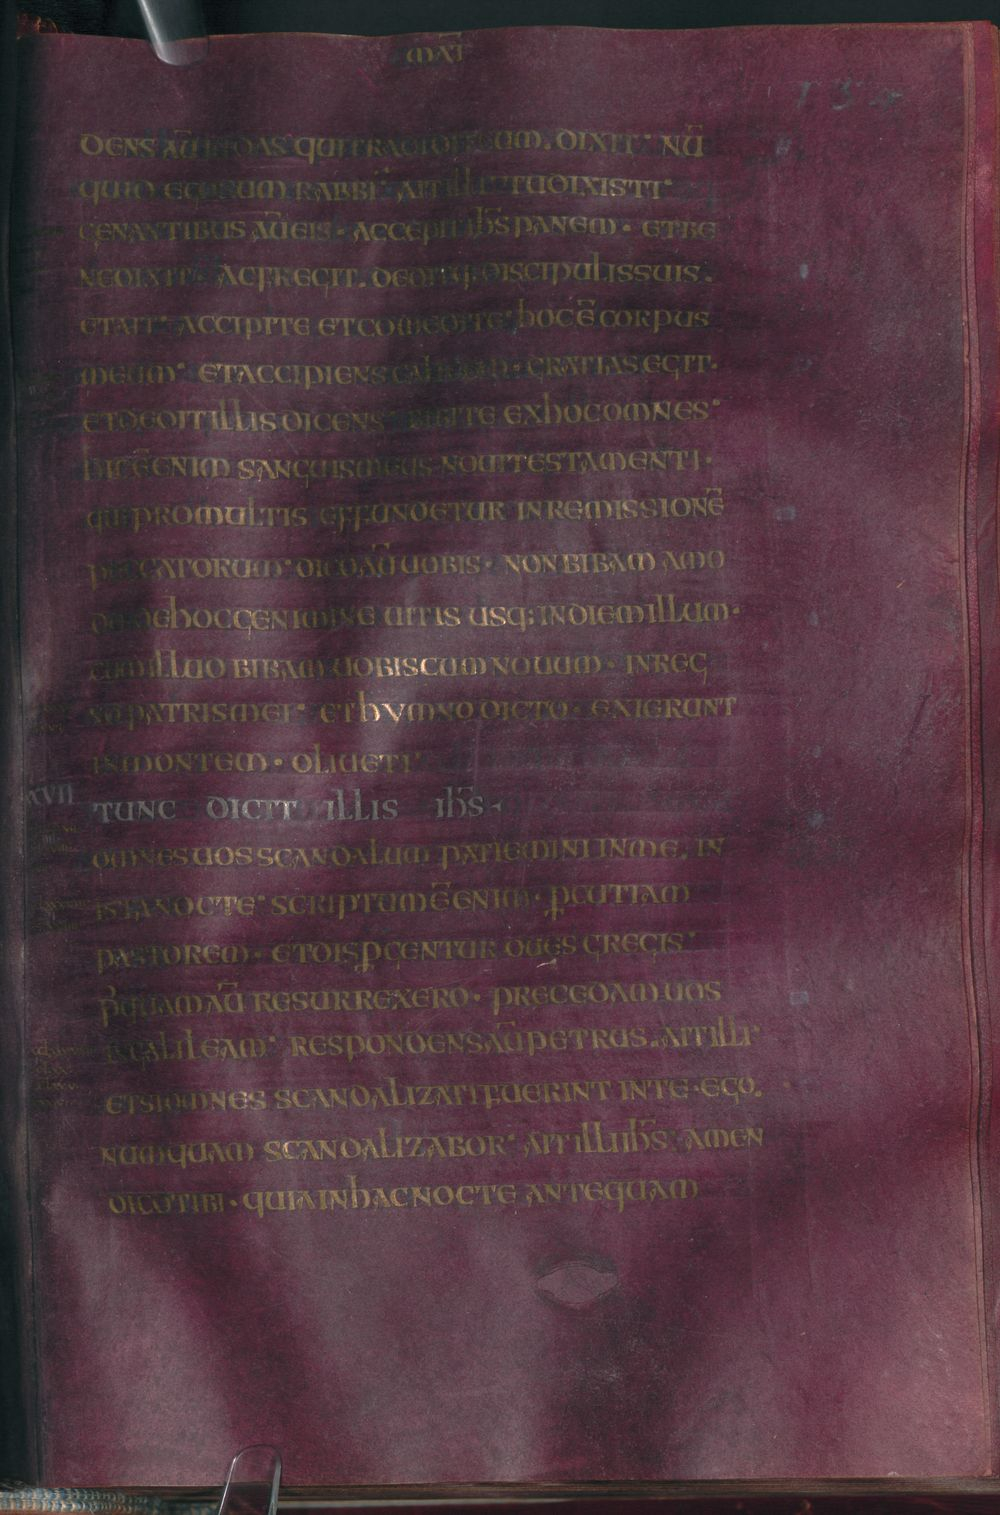 MAT̄
DENS AŪ IUDAS QUI TRADIDIT EUM. DIXIT· NŪ
QUID EGO SUM RABBI· AIT ILLI· TU DIXISTI·
CENANTIBUS AŪ EIS· ACCEPIT IH̄S PANEM· ET BE
NEDIXIT· AC FREGIT. DEDITQ; DISCIPULIS SUIS.
ET AIT· ACCIPITE ET COMEDITE· HOC Ē CORPUS
MEUM· ET ACCIPIENS CALICEM· GRATIAS EGIT·
ET DEDIT ILLIS DICENS· BIBITE EX HOC OMNES·
HIC Ē ENIM SANGUIS MEUS NOUI TESTAMENTI·
QUI PRO MULTIS EFFUNDETUR IN REMISSIONĒ
PECCATORUM· DICO AŪ UOBIS· NON BIBAM AMO
DO DE HOC GENIMINE UITIS USQ; IN DIEM ILLUM·
CUM ILLUD BIBAM UOBISCUM NOUUM· IN REG
NO PATRIS MEI· ET HYMNO DICTO· EXIERUNT
IN MONTEM· OLIUETI·
XVII TUNC DICIT ILLIS IH̄S·
OMNES UOS SCANDALUM PATIEMINI IN ME. IN
ISTA NOCTE· SCRIPTUM Ē ENIM· P̄CUTIAM
PASTOREM· ET DISP̄GENTUR OUES GREGIS·
P̄QUAM AŪ RESURREXERO· PRECEDAM UOS
IN GALILEAM· RESPONDENS AŪ PETRUS. AIT ILLI·
ET SI OMNES SCANDALIZATI FUERINT IN TE· EGO.
NUMQUAM SCANDALIZABOR· AIT ILLI IH̄S· AMEN
DICO TIBI· QUIA IN HAC NOCTE ANTEQUAM